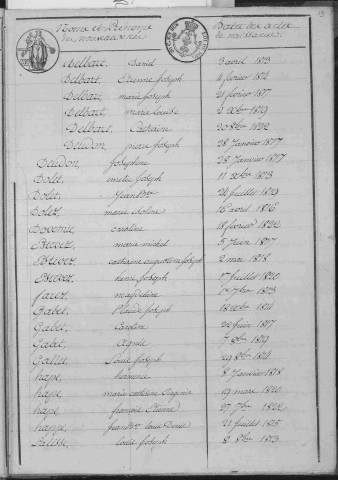 Noms et Prénoms des nouveaux nés Dates des actes de naissances
Delbart, Daniel 3 avril 1813
Delbart, Etienne Joseph 4 février 1814
Delbart, marie Joseph 21 février 1817
Delbart, marie Louise 2 Xbre 1819
Delbart, 20 8bre 1822
Deudon, pierre Joseph 28 Janvier 1817
Deudon, Joséphine 28 Janvier 1817
Dolet, Joseph 11 Xbre 1813
Dolet, Jean Bte 24 Juillet 1819
Dolez, marie 16 avril 1816
caroline 18 février 1822
marie michel 5 Juin 1817
catherine augustine Joseph 2 mai 1818
henri Joseph 17 Juillet 1820
magdeleine 1813
Gabet, Placide Joseph 18 Xbre 1814
Gabet, Caroline 22 Juin 1817
Gabet, Agnés 7 8bre 1819
Gallet, Louis Joseph 29 8bre 1814
hape, 8 Janvier 1818
hape, marie catherine 19 mars 1820
hape, françois Etienne 27 7bre 1822
happe, Jean Bte Louis David 21 Juillet 1815
Lalisse, Louis Joseph 8 8bre 1813